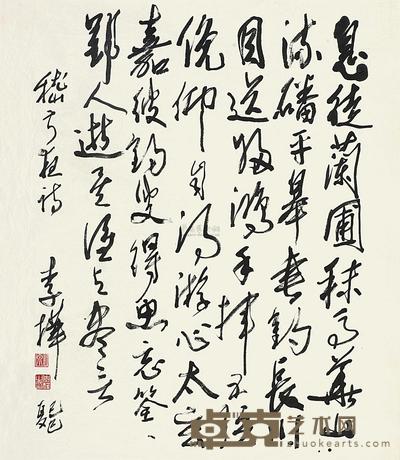 息徒蘭圃秣馬華山
流磻平皋垂釣長川
目送歸鴻手揮五弦
俯仰自得游心太玄
嘉彼釣叟得魚忘筌
郢人逝矣誰與盡言
嵇叔夜詩
李樺
卓克艺术网
www.zhuokearts.com